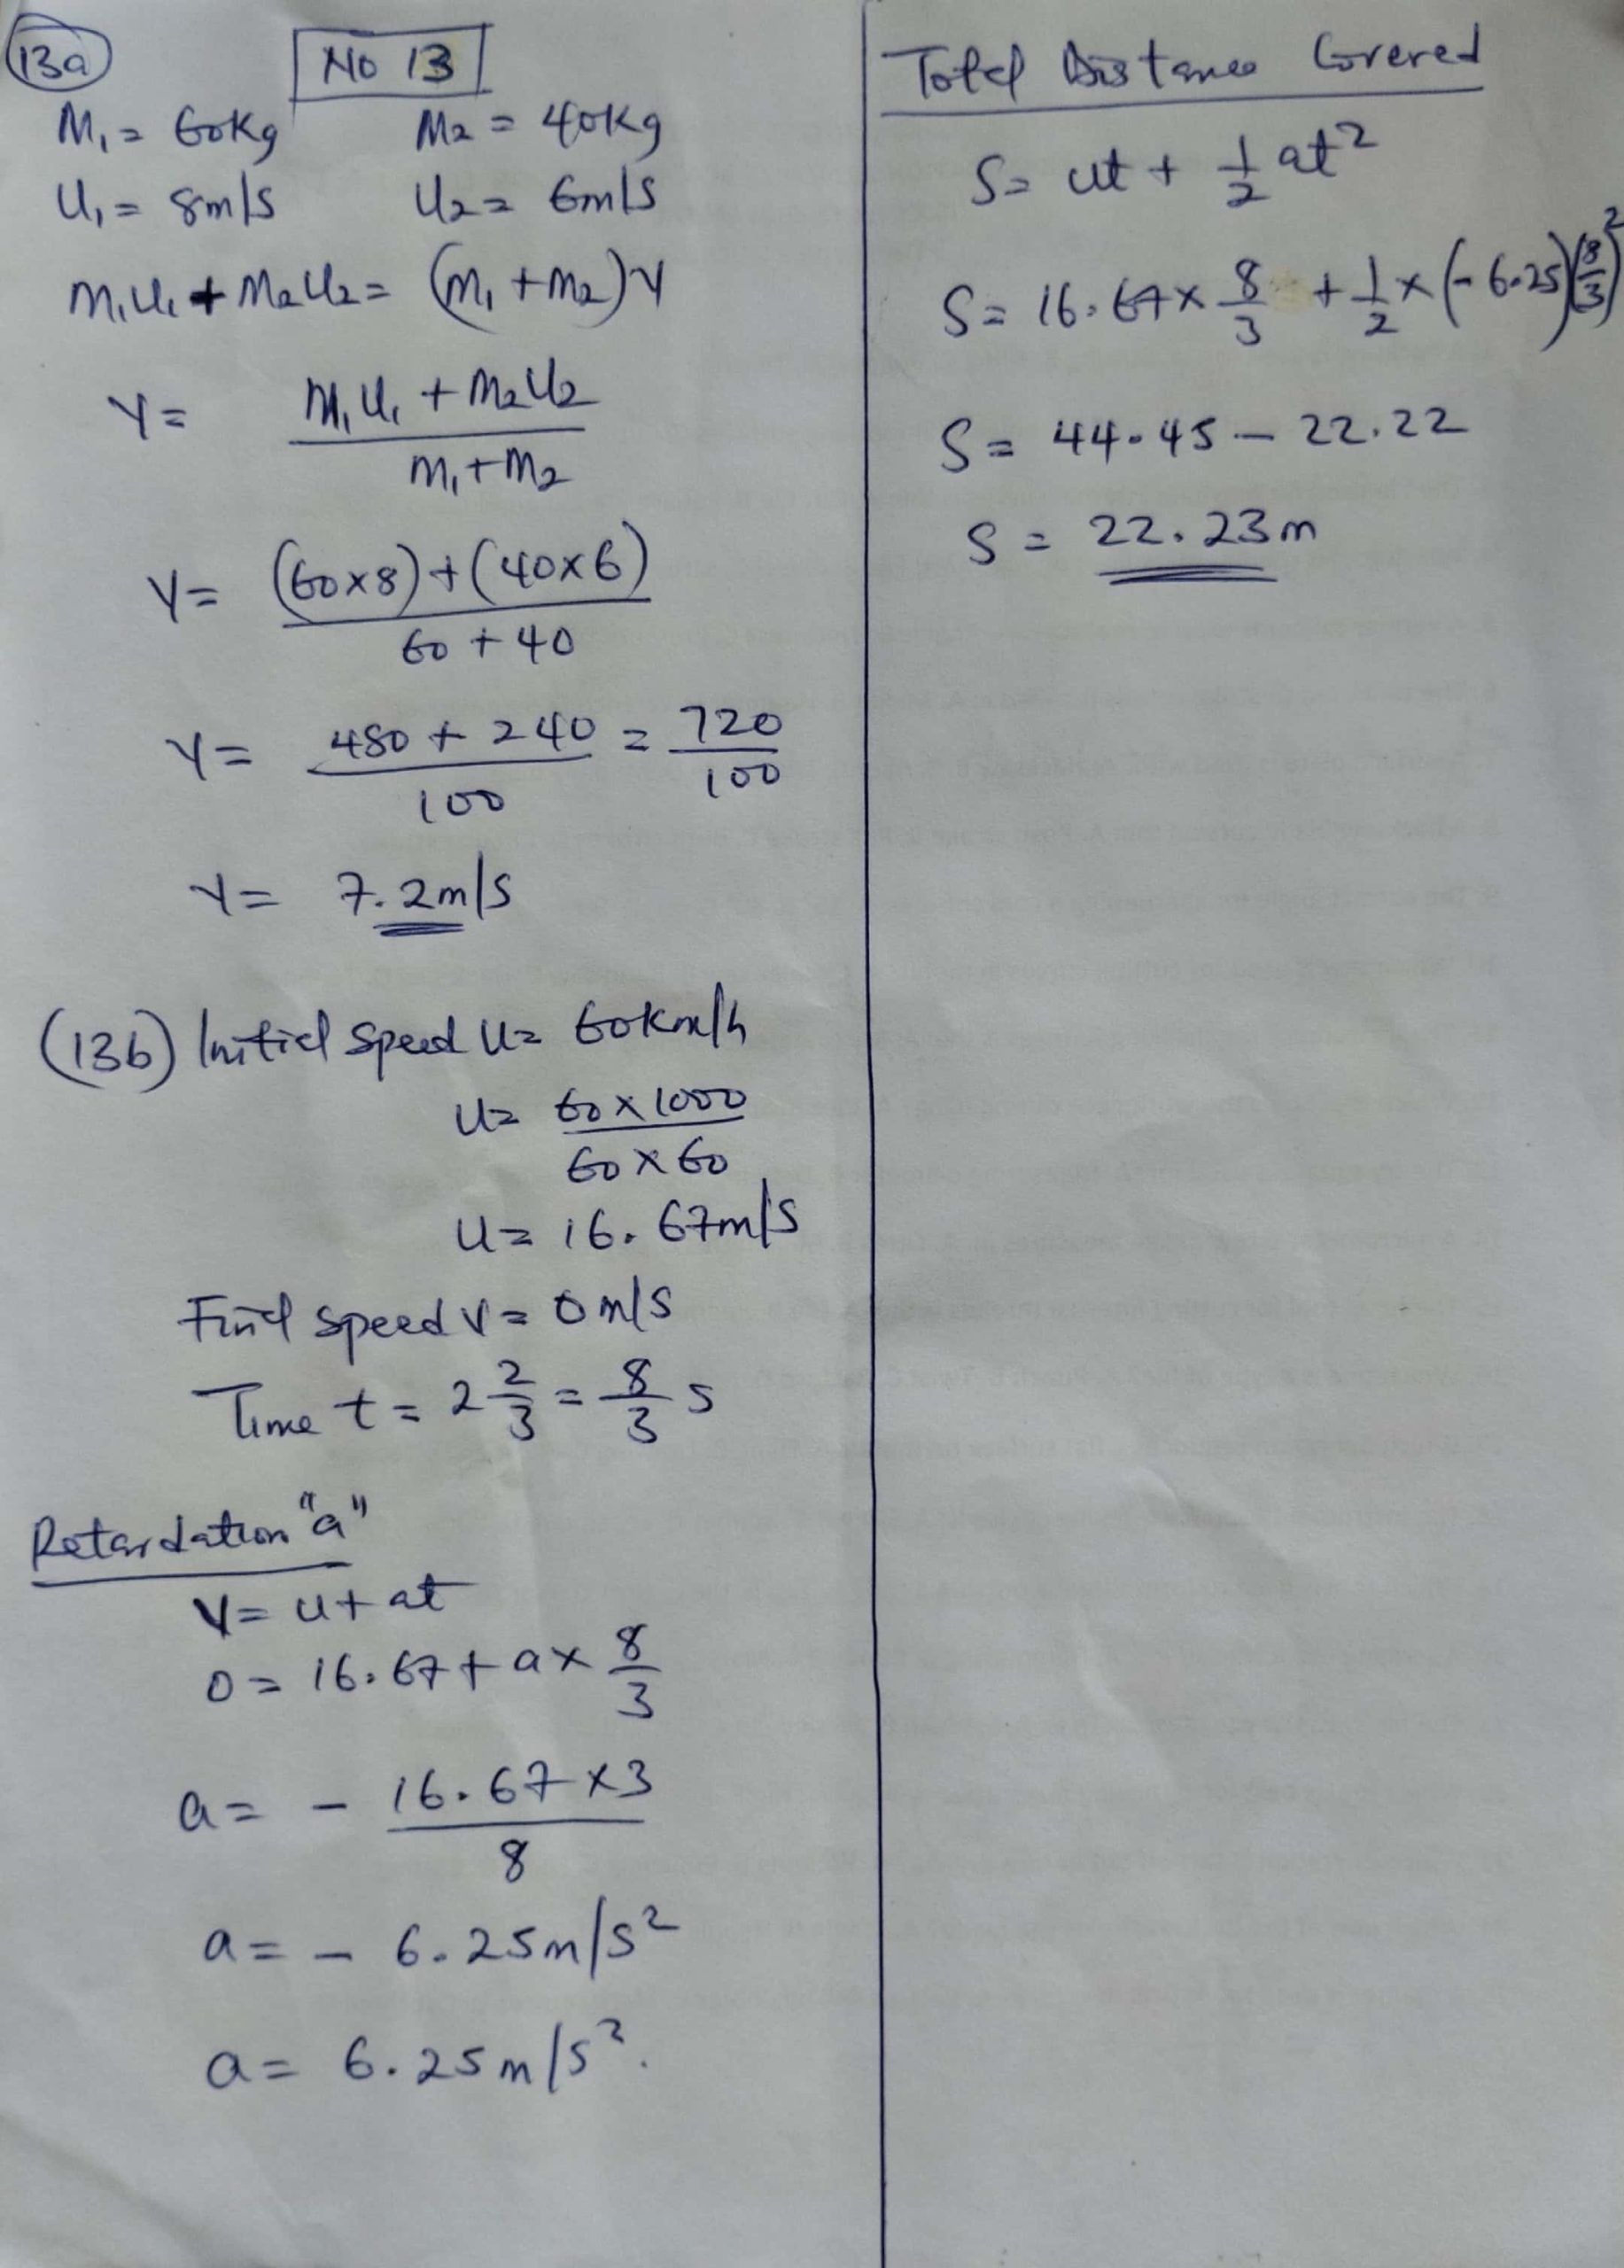 13a
No 13
M₁ = 60kg M₂ = 40kg
U₁ = 8m/s U₂ = 6m/s
M₁U₁ + M₂U₂ = (M₁ + M₂)V
V = M₁U₁ + M₂U₂ / M₁ + M₂
V = (60×8) + (40×6) / 60 + 40
V = 480 + 240 / 100 = 720 / 100
V = 7.2m/s
(13b) Initial speed U = 60km/h
U = 60 × 1000 / 60 × 60
U = 16.67m/s
Final speed V = 0m/s
Time t = 2 2/3 = 8/3 s
Retardation "a"
V = U + at
0 = 16.67 + a × 8/3
a = - 16.67 × 3 / 8
a = - 6.25m/s²
a = 6.25m/s².
Total Distance Covered
S = ut + 1/2 at²
S = 16.67 × 8/3 + 1/2 × (-6.25)(8/3)²
S = 44.45 - 22.22
S = 22.23m